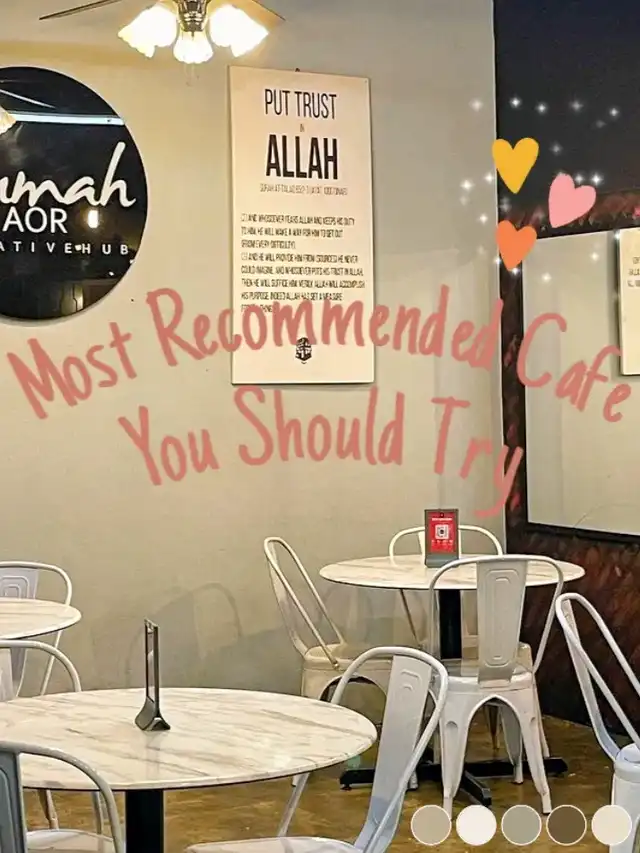 umah
AOR
ATIVE HUB
PUT TRUST
IN
ALLAH
[2] AND WHOSOEVER FEARS ALLAH AND KEEPS HIS DUTY
TO HIM, HE WILL MAKE A WAY FOR HIM TO GET OUT
(FROM EVERY DIFFICULTY).
[3] AND HE WILL PROVIDE HIM FROM (SOURCES) HE NEVER
COULD IMAGINE. AND WHOSOEVER PUTS HIS TRUST IN ALLAH,
THEN HE WILL SUFFICE HIM. VERILY, ALLAH WILL ACCOMPLISH
HIS PURPOSE. INDEED ALLAH HAS SET A MEASURE
Most Recommended Cafe
You Should Try